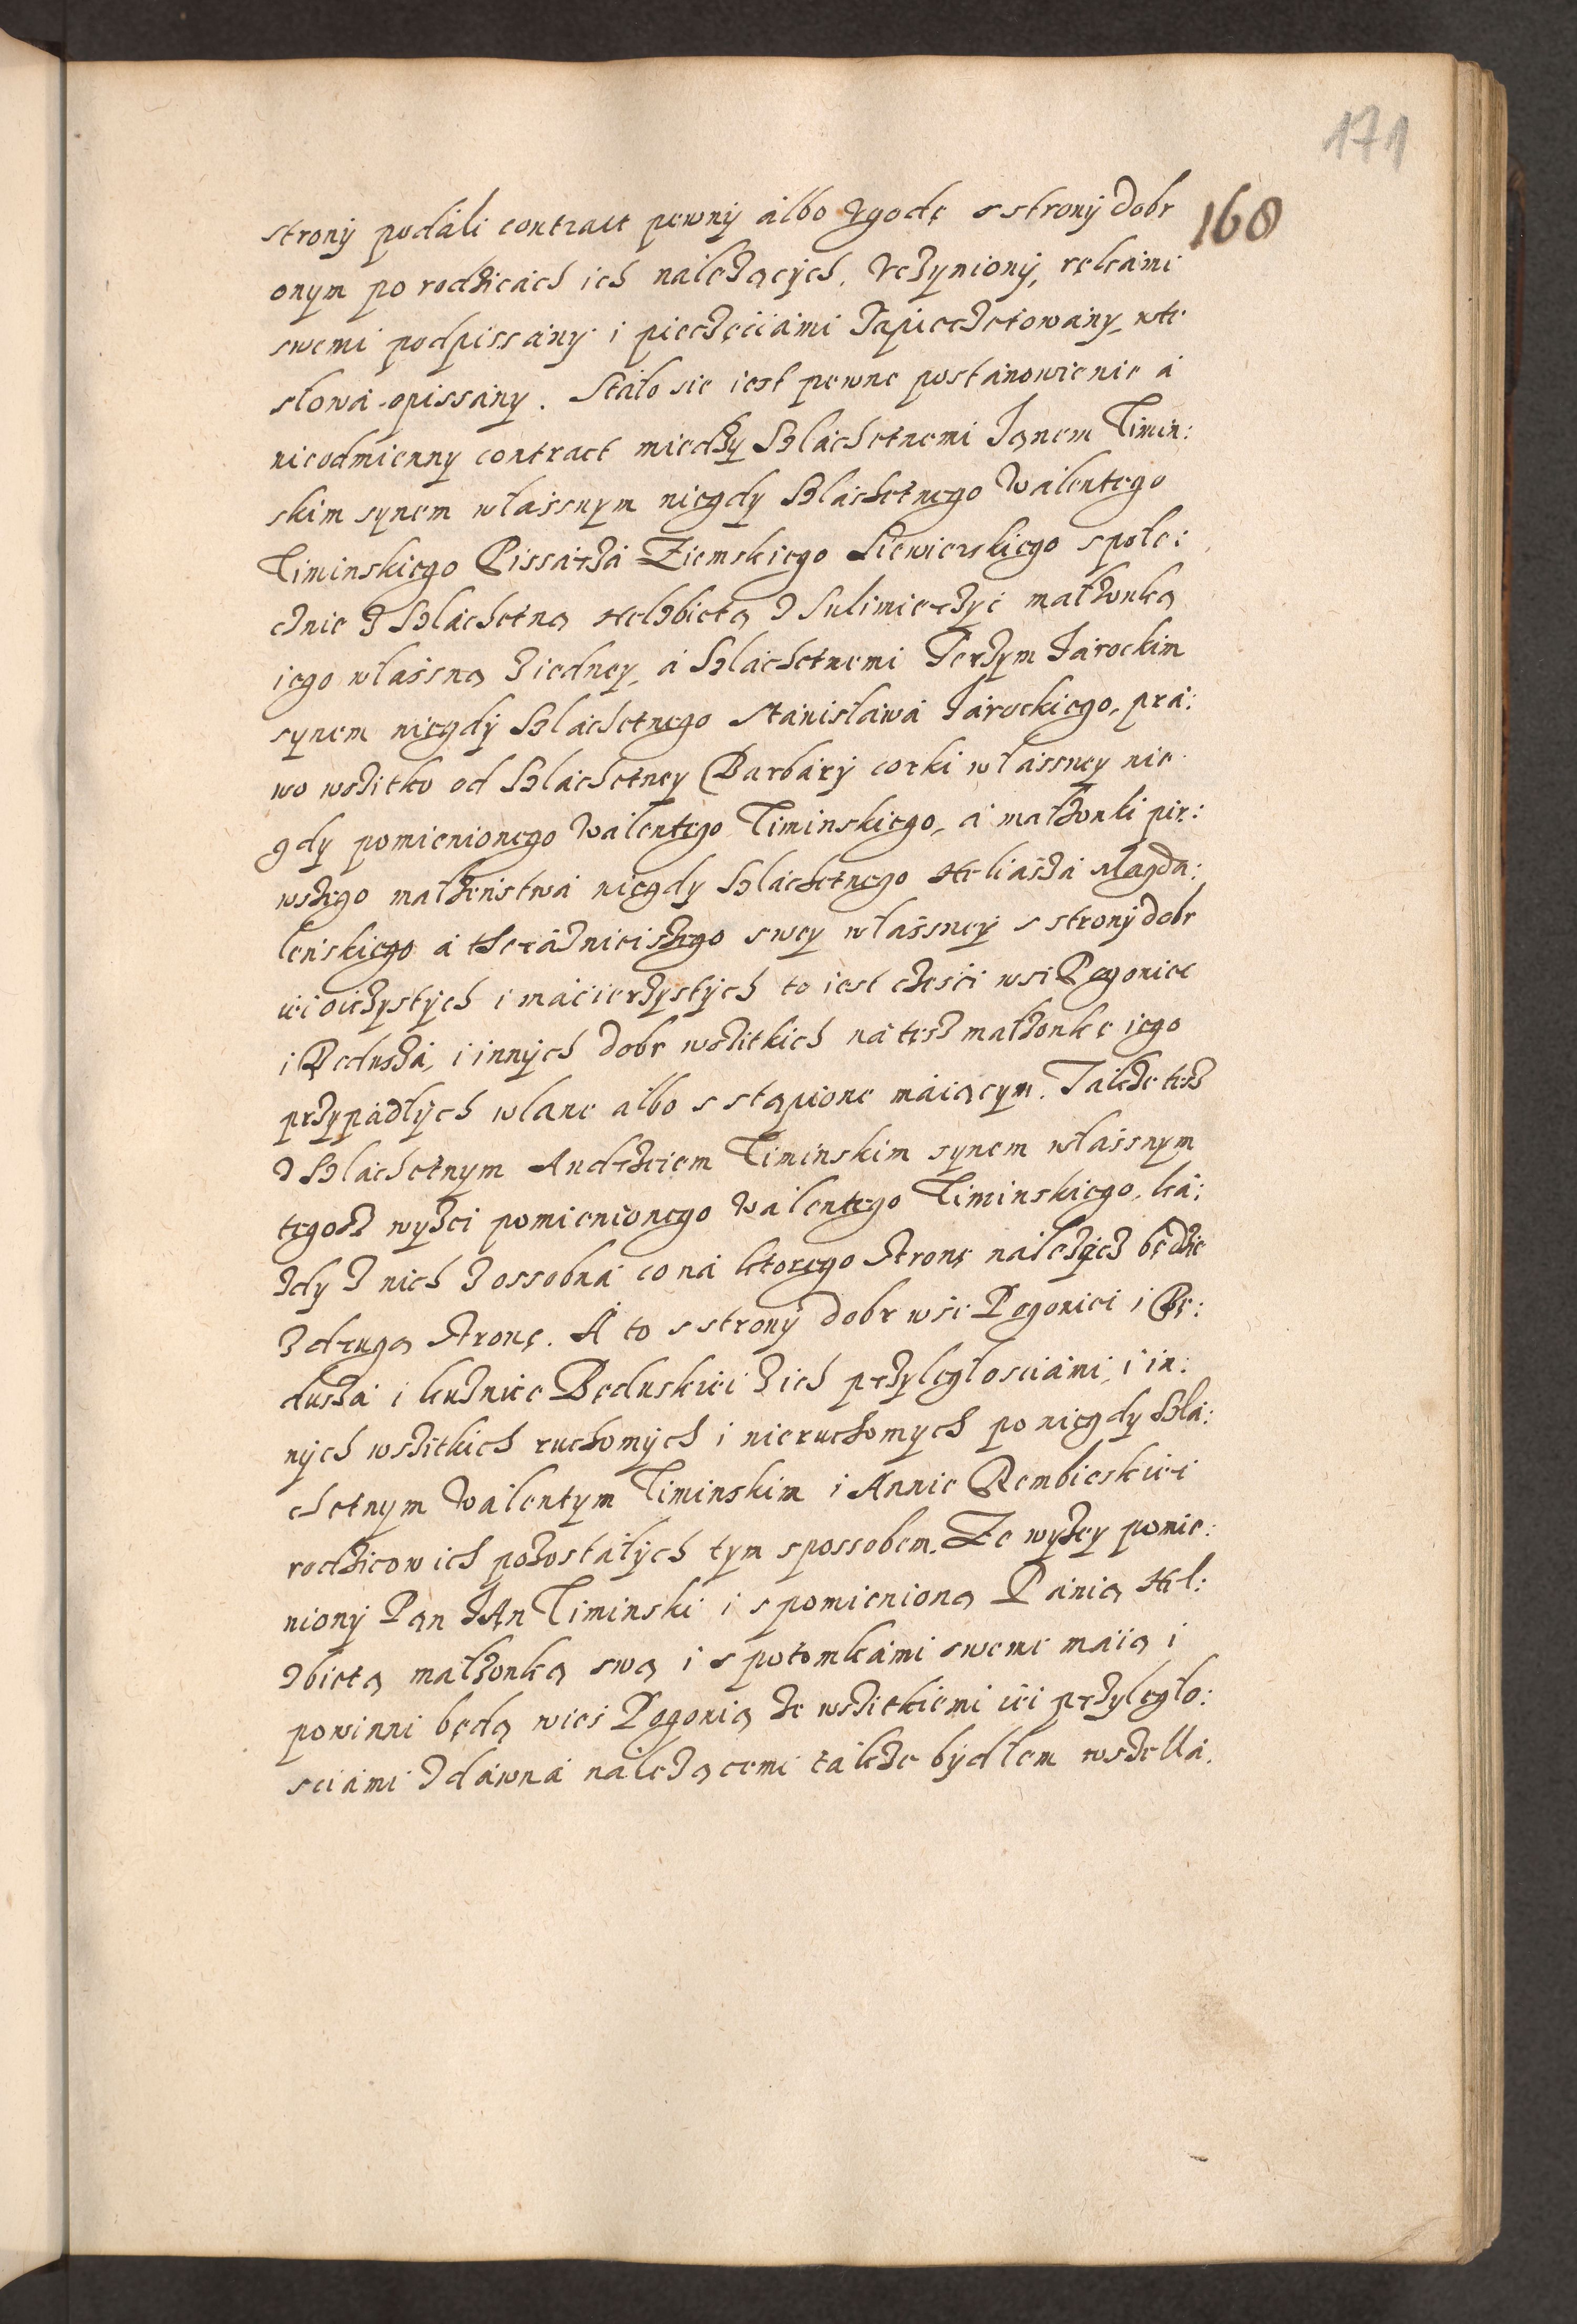 171
168
strony podali contract pewny albo zgodę s strony dobr
onym po rodzicach ich należących, vczyniony, rękami
swemi podpissany i pieczęciami zapieczetowany, w te
słowa opissany. Stało sie iest pewne postanowienie a
nieodmienny contract miedzy Szlachetnemi Janem Timin:
skim synem własnym niegdy Szlachetnego Walentego
Timinskiego Pissarza Ziemskiego Siewierskiego społe:
cznie z Szlachetną Helzbietą z Sulimierzyc małżonką
iego własną z iedney, a Szlachetnemi Jerzym Jarockim
synem niegdy Szlachetnego Stanisława Jarockiego, pra:
wo wszitko od Szlachetney Barbary corki własney nie
gdy pomienionego Walentego Timinskiego, a małżonki pir:
wszego małżeństwa niegdy Szlachetnego Heliasza Magda:
lenskiego a theraznieiszego swey własney s strony dobr
iei oiczystych i macierzystych to iest części wsi Pogoniee
i Będusza, i innych dobr wszitkich na tesz małżonkę iego
przypadłych wlane albo s stąpione maiącym. Także tesz
z Szlachetnym Andrzeiem Timinskim synem własnym
tegosz wyżei pomienionego Walentego Timinskiego, ka:
żdy z nich z ossobna co na ktorego stronę należeć będzie
z drugą stronę. A to s strony dobr wsi Pogoniei i Bę:
dusza i kuznice Będuskiei z ich przyległosciami, i in:
nych wszitkich ruchomych i nieruchomych po niegdy Szla:
chetnym Walentym Timinskim i Annie Rembieskiei
rodzicow ich pozostałych tym spossobem. Ze wyżey pomie:
niony Pan Jan Timinski i s pomienioną Panią Hel:
zbietą małżonką swą i s potomkami sweme maią i
powinni będą wieś Pogonią ze wszitkiemi iei przyległo:
sciami zdawna należącemi także bydłem wszella.